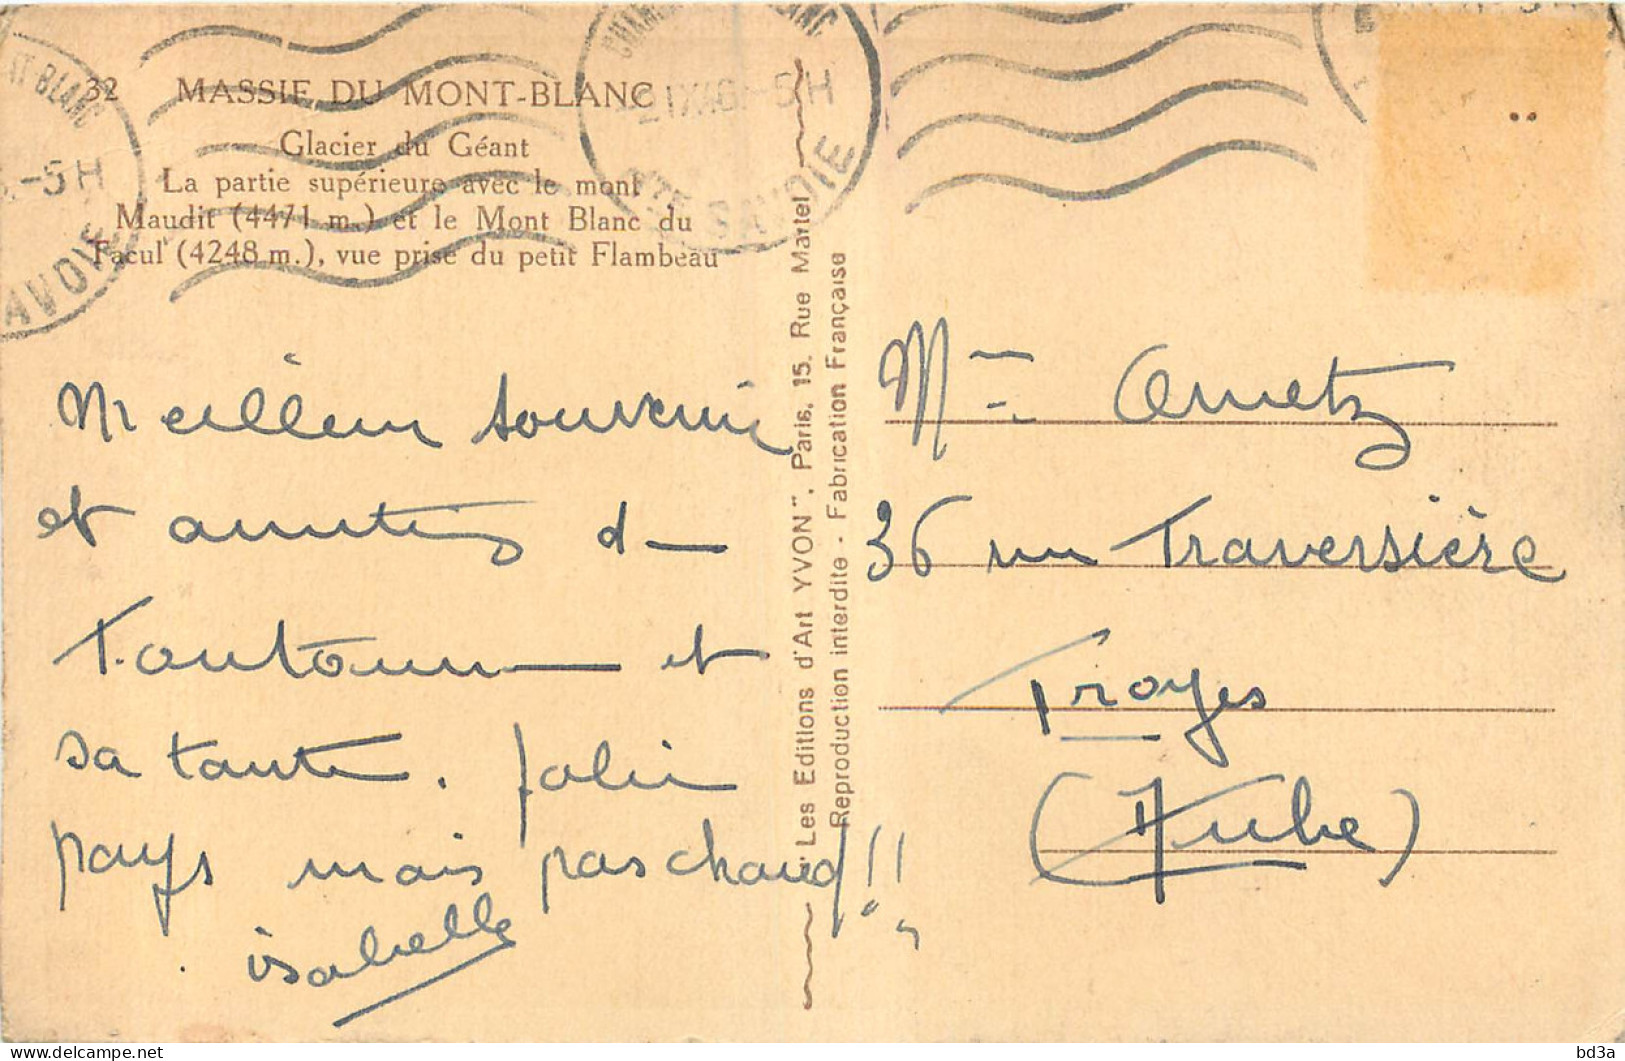 32 MASSIF DU MONT-BLANC
Glacier du Géant
La partie supérieure avec le mont
Maudit (4471 m.) et le Mont Blanc du
Tacul (4248 m.), vue prise du petit Flambeau
AT-BLANC
-5H
AVOIE
BLANC
-5H
HTE SAVOIE
Meilleur souvenir
et amitiés de
Tontonne et
sa tante. Jolie
pays mais pas chaud!!
isabelle
"Les Editions d'Art YVON", Paris, 15, Rue Martel
Reproduction interdite - Fabrication Française
Mme
36 rue Traversière
Troyes
(Aube)
delcampe.net
bd3a